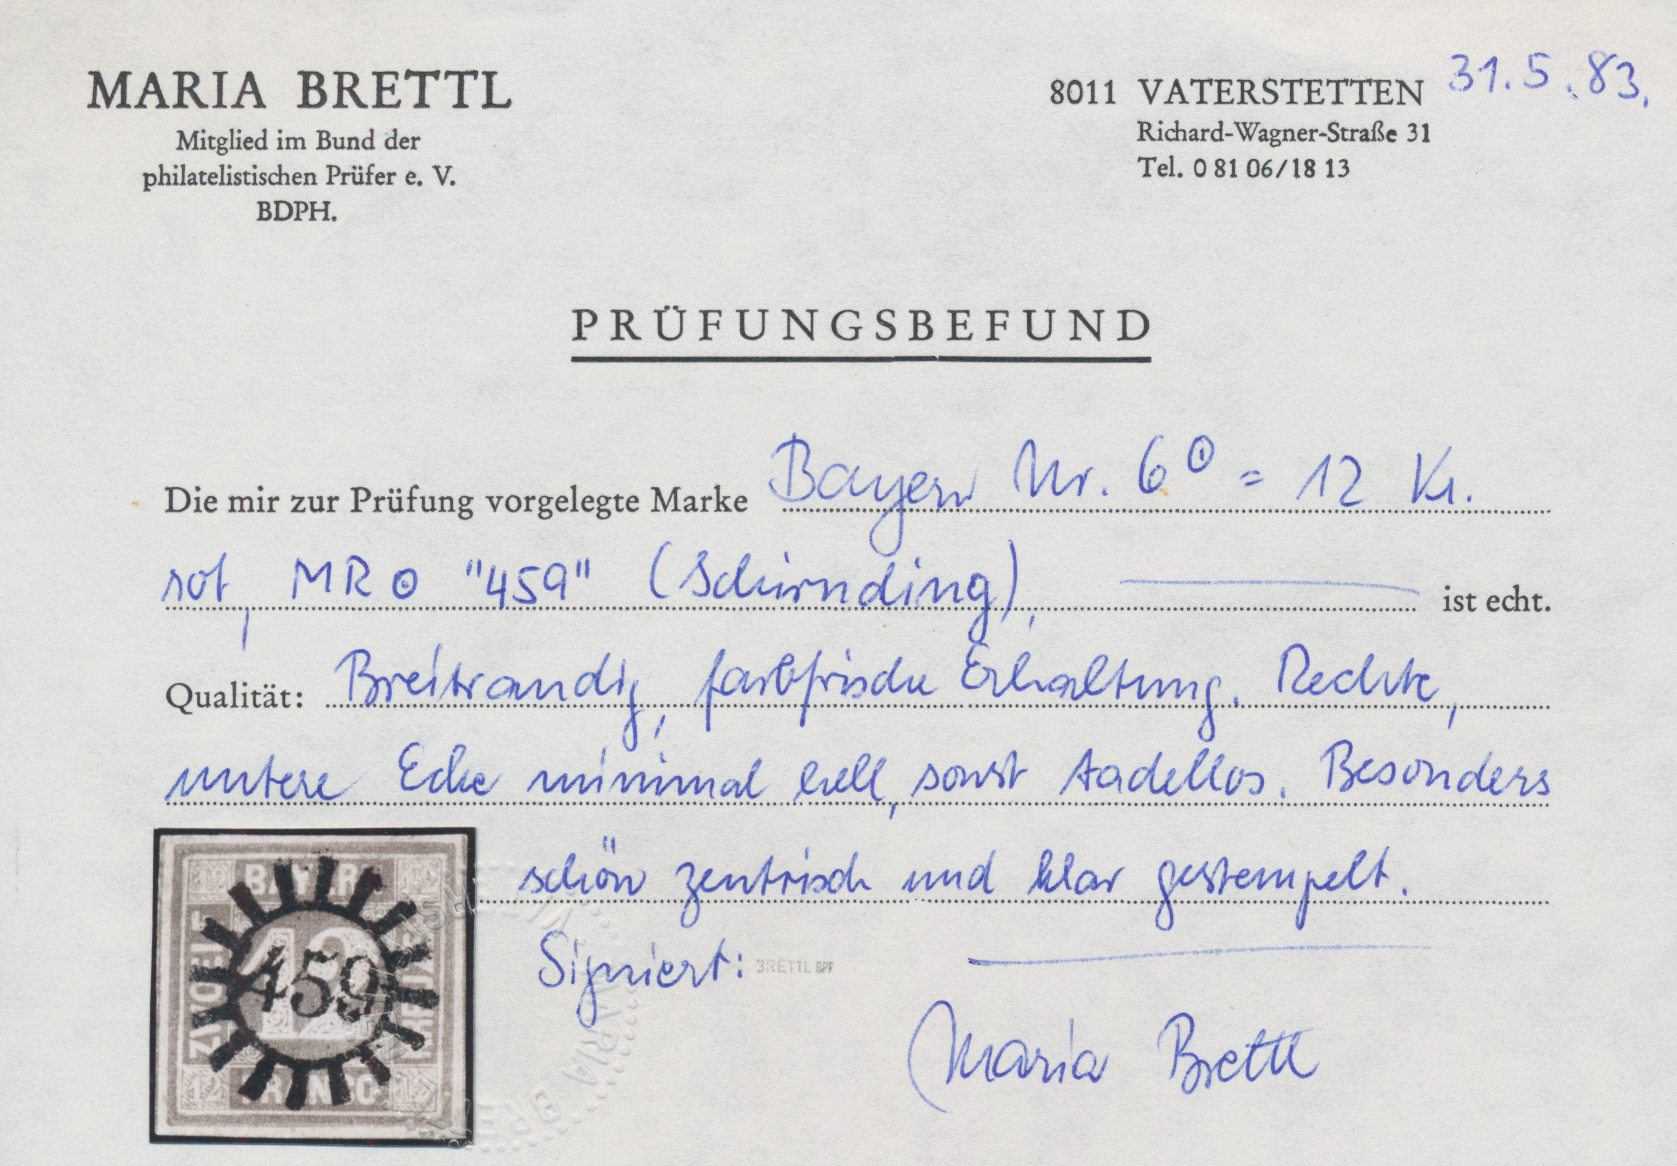 MARIA BRETTL
Mitglied im Bund der
philatelistischen Prüfer e. V.
BDPH.
8011 VATERSTETTEN 31.5.83.
Richard-Wagner-Straße 31
Tel. 0 81 06/18 13
PRÜFUNGSBEFUND
Die mir zur Prüfung vorgelegte Marke Bayern Nr. 6 ⊙ = 12 Kr.
rot, MR ⊙ "459" (Schirnding), ist echt.
Qualität: Breitrandig, farbfrische Erhaltung. Rechte,
untere Ecke minimal hell, sonst tadellos. Besonders
schön zentrisch und klar gestempelt.
Signiert: BRETTL BPP
Maria Brettl
BAYERN
ZWÖLF
12
459
KREUZER
FRANCO
MARIA BRETTL